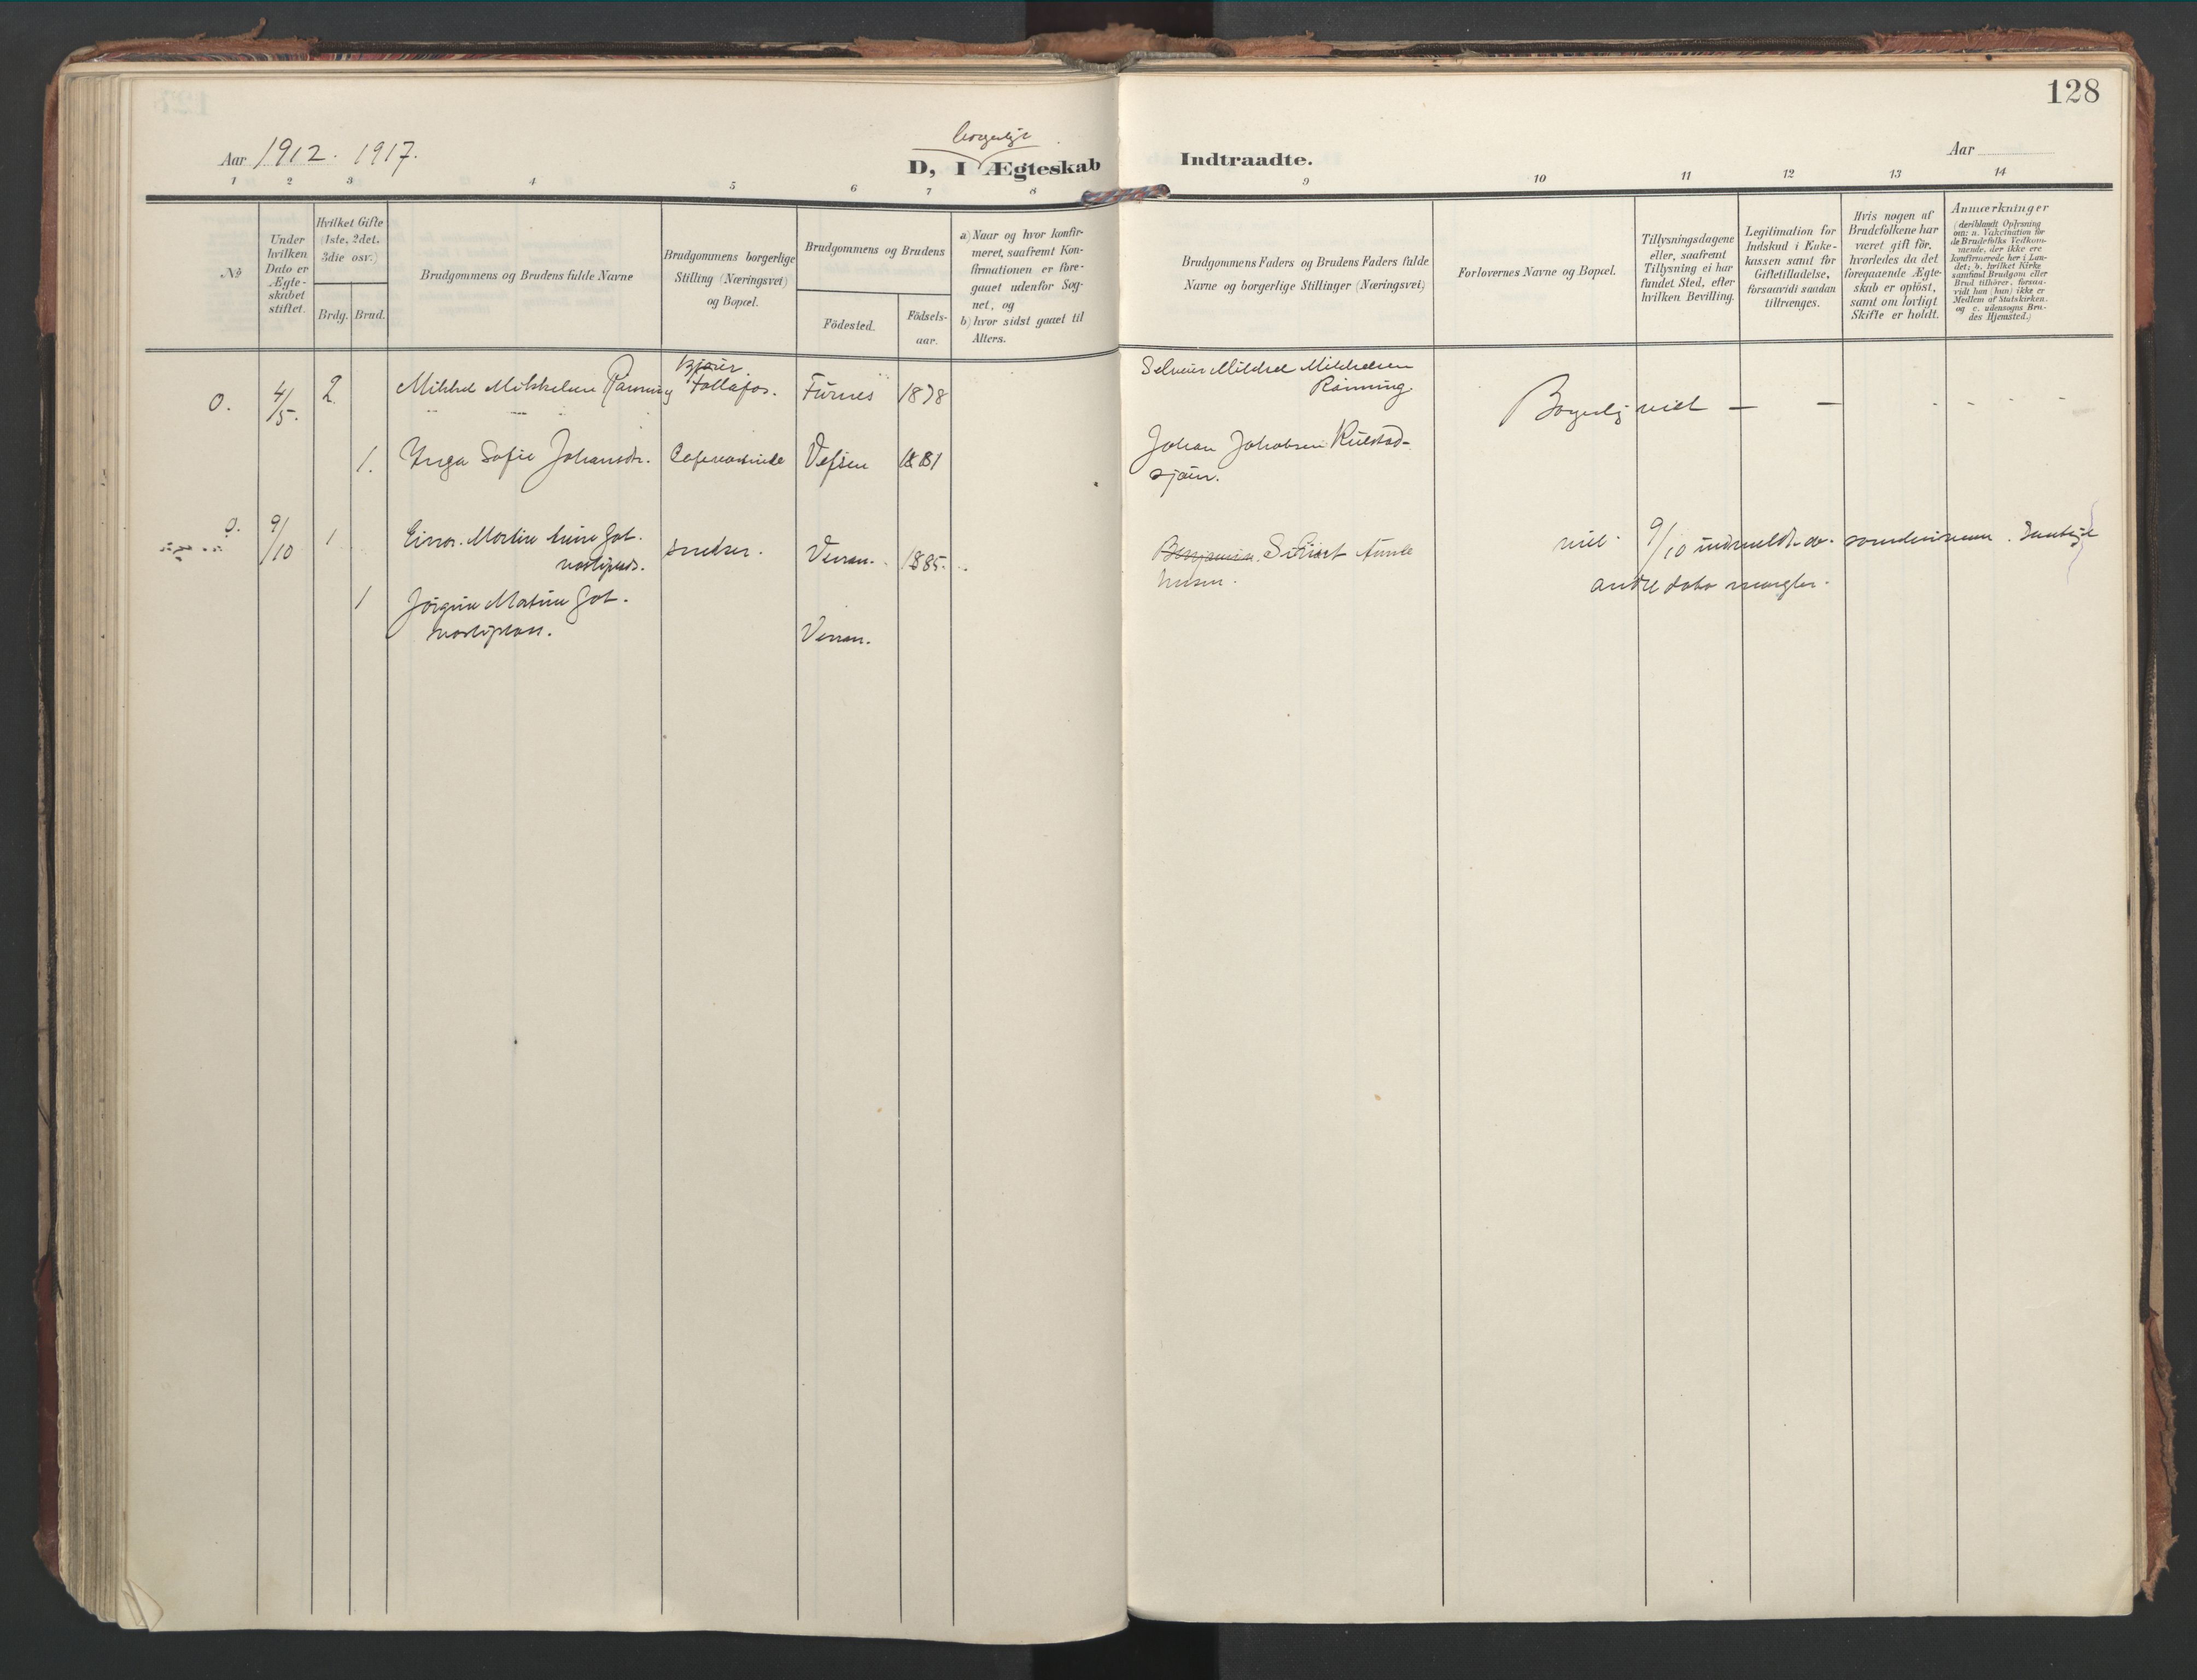 128
Aar 1912. 1917.
borgerligt
D, I Ægteskab Indtraadte.
Aar
1 2 3 4 5 6 7 8 9 10 11 12 13 14
No
Under
hvilken
Dato er
Ægte-
skabet
stiftet.
Hvilket Gifte
(1ste, 2det,
3die osv.)
Brdg. Brud.
Brudgommens og Brudens fulde Navne
Brudgommens borgerlige
Stilling (Næringsvei)
og Bopæl.
Brudgommens og Brudens
Födested.
Födsels-
aar.
a) Naar og hvor konfir-
meret, saafremt Kon-
firmationen er fore-
gaaet udenfor Sog-
net, og
b) hvor sidst gaaet til
Alters.
Brudgommens Faders og Brudens Faders fulde
Navne og borgerlige Stillinger (Næringsvei)
Forlovernes Navne og Bopæl.
Tillysningsdagene
eller, saafremt
Tillysning ei har
fundet Sted, efter
hvilken Bevilling.
Legitimation for
Indskud i Enke-
kassen samt for
Giftetilladelse,
forsaavidt saadan
tiltrænges.
Hvis nogen af
Brudefolkene har
været gift för,
hvorledes da det
foregaaende Ægte-
skab er oplöst,
samt om lovligt
Skifte er holdt.
Anmærkninger
(deriblandt Oplysning
om: a. Vakcination for
de Brudefolks Vedkom-
mende, der ikke ere
konfirmerede her i Lan-
det; b. hvilket Kirke-
samfund Brudgom eller
Brud tilhörer, forsaa-
vidt han (hun) ikke er
Medlem af Statskirken,
og c. udensogns Bru-
des Hjemsted.)
0. 4/5. 2. Mikkel Mikkelsen Rönning Follafos. Furnes 1878 Mikkel Mikkelsen
Rönning.
Borgerlig viet — —
1. Inga Sofie Johansdtr. Vefsen 1881 Johan Jakobsen
sjöen.
0. 9/10 1 Einar Martin
Verran. 1885.
viet 9/10 indmeldt
andre data mangler.
1 Jörgine Martine
Verran.